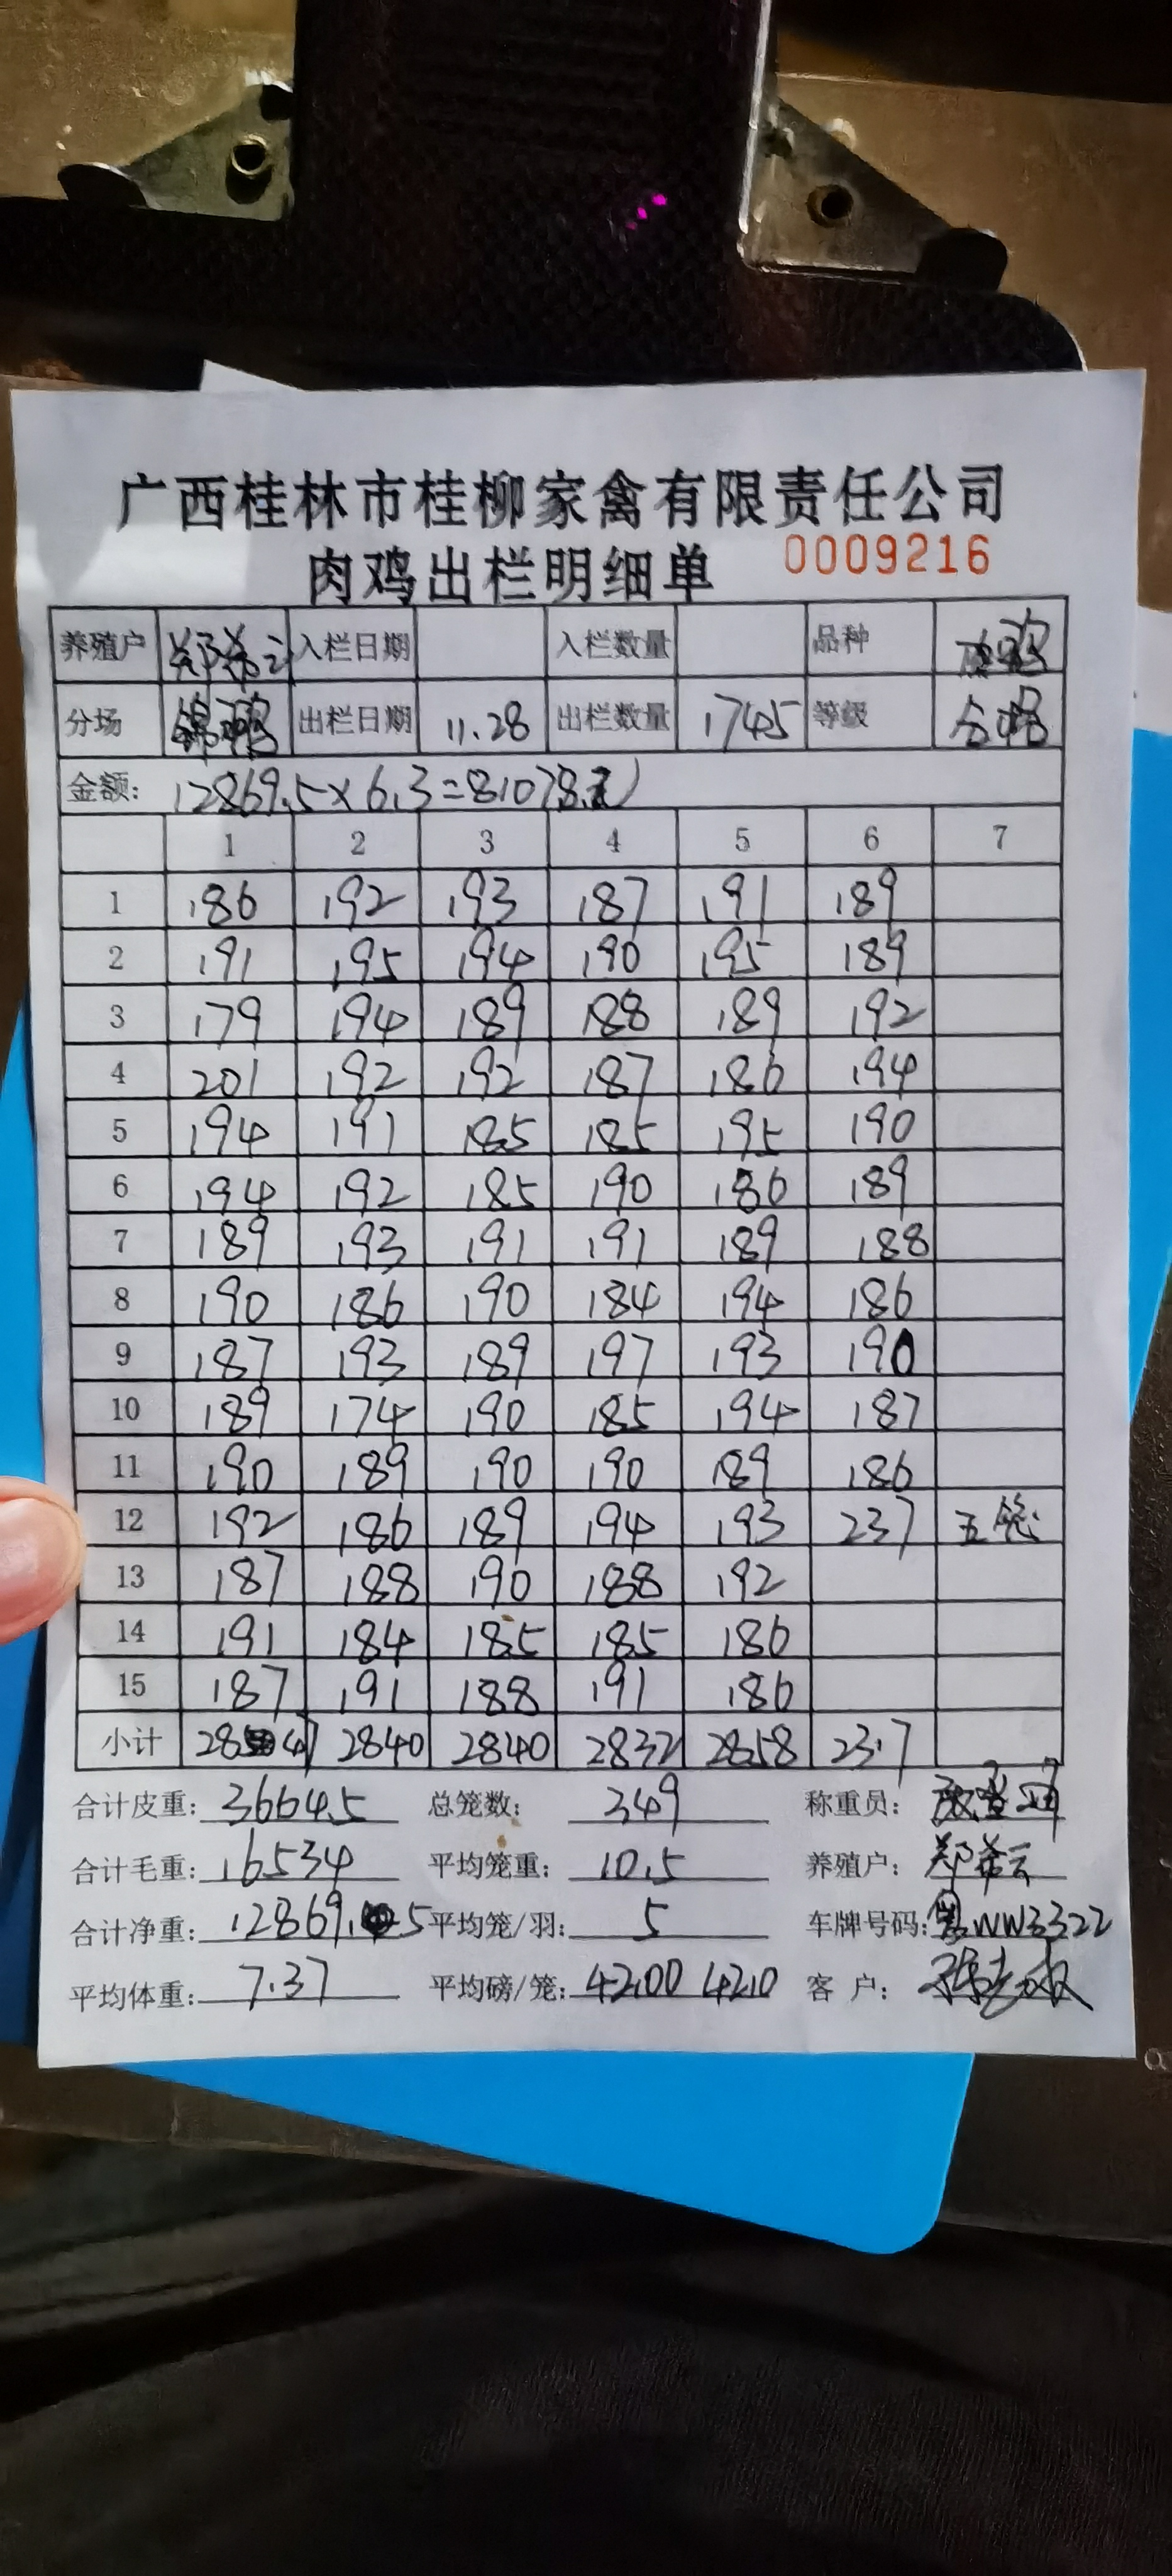 广西桂林市桂柳家禽有限责任公司
肉鸡出栏明细单 0009216
养殖户 入栏日期 入栏数量 品种
分场 出栏日期 11.28 出栏数量 1745 等级 合格
金额: 12869.5×6.3=81078元
1 2 3 4 5 6 7
1 186 192 193 187 191 189
2 191 195 194 190 195 189
3 179 194 189 188 189 192
4 201 192 192 187 186 194
5 194 191 185 185 195 190
6 194 192 185 190 186 189
7 189 193 191 191 189 188
8 190 186 190 184 194 186
9 187 193 189 197 193 190
10 189 174 190 185 194 187
11 190 189 190 190 189 186
12 192 186 189 194 193 237 五笼
13 187 188 190 188 192
14 191 184 185 185 186
15 187 191 188 191 186
小计 2847 2840 2840 2832 2858 23.7
合计皮重: 3664.5 总笼数: 349 称重员:
合计毛重: 16534 平均笼重: 10.5 养殖户:
合计净重: 12869.5 平均笼/羽: 5 车牌号码: 粤WW3322
平均体重: 7.37 平均磅/笼: 42.00 42.0 客 户: